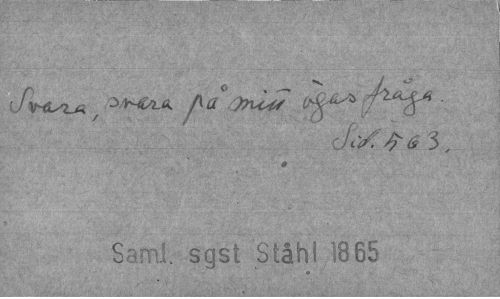 Svara, svara på mitt ögas fråga.
Sid. 563.
Saml. sgst Ståhl 1865